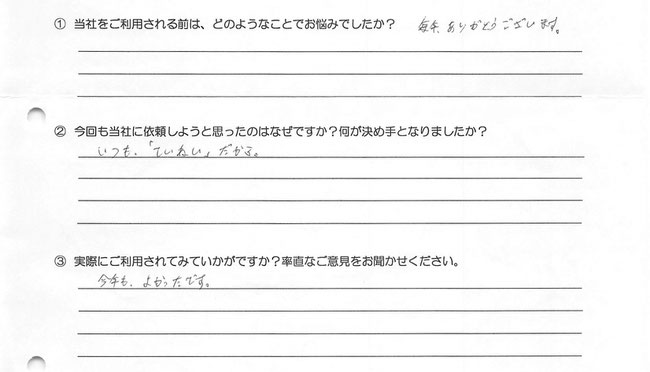 ① 当社をご利用される前は、どのようなことでお悩みでしたか？ 毎年、ありがとうございます。
② 今回も当社に依頼しようと思ったのはなぜですか？何が決め手となりましたか？
いつも、「ていねい」だから。
③ 実際にご利用されてみていかがですか？率直なご意見をお聞かせください。
今年も、よかったです。